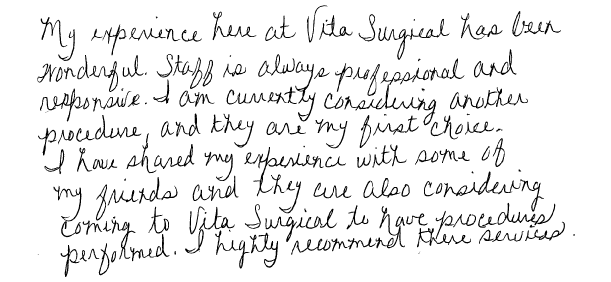 My experience here at Vita Surgical has been
wonderful. Staff is always professional and
responsive. I am currently considering another
procedure, and they are my first choice.
I have shared my experience with some of
my friends and they are also considering
coming to Vita Surgical to have procedures
performed. I highly recommend there services.